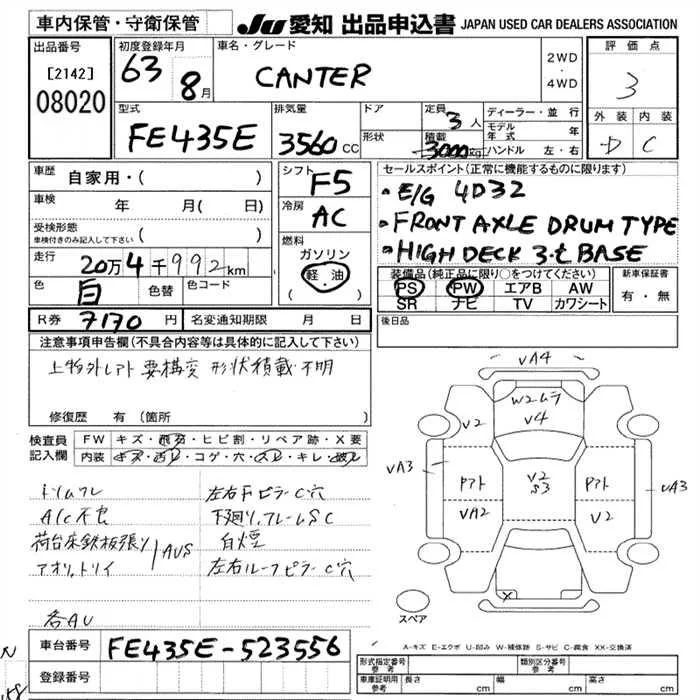 車内保管・守衛保管
JU 愛知 出品申込書 JAPAN USED CAR DEALERS ASSOCIATION
出品番号
[2142]
08020
初度登録年月
63 8月
車名・グレード
CANTER
2WD
・
4WD
評価点
3
外装 内装
D C
型式
FE435E
排気量
3560 CC
ドア
形状
定員 3 人
積載 3000 kg
ディーラー・並行
モデル年式 年
ハンドル 左・右
車歴 自家用・( )
車検 年 月( 日)
受検形態
車検付きのみ記入して下さい ( )
走行 20万4千992km
色 白 色替 色コード
シフト F5
冷房 AC
燃料
ガソリン
軽・油
( )
セールスポイント(正常に機能するものに限ります)
• E/G 4D32
• FRONT AXLE DRUM TYPE
• HIGH DECK 3.t BASE
装備品(純正品に限り○をつけてください)
PS PW エアB AW
SR ナビ TV カワシート
新車保証書
有・無
R券 7170 円 名変通知期限 月 日
後日品
注意事項申告欄(不具合内容等は具体的に記入して下さい)
上物外レアト 要構変 形状積載不明
修復歴 有(箇所 )
検査員記入欄
FW キズ・飛石・ヒビ割・リペア跡・X要
内装 キズ・汚レ・コゲ・穴・スレ・キレ・破レ
トリムワレ
A/C不良
荷台床鉄板張り
アオリ、トリイ
AUS
各AU
左右Fピラーc穴
下廻り、フレームSC
白煙
左右ルーフピラーC穴
VA4
W2ムラ
V4
V2
VA3
アアト
V2
S3
アアト
VA3
VA2
V2
X
スペア
A-キズ E-エクボ U-凹み W-補修跡 S-サビ C-腐食 XX-交換済
車台番号 FE435E-523556
登録番号
形式指定番号
参考
類別区分番号
参考
車庫証明用
参考
長さ cm 幅 cm 高さ cm